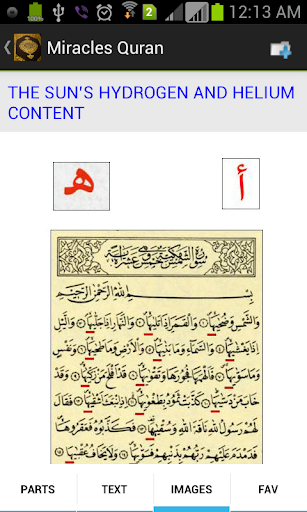 2
12:13 AM
Miracles Quran
THE SUN'S HYDROGEN AND HELIUM
CONTENT
ﻫ أ
سُورَةُ الشَّمْسِ مَكِّيَّةٌ وَهِيَ خَمْسَ عَشْرَةَ اٰيَةً
بِسْمِ اللّٰهِ الرَّحْمٰنِ الرَّحِيمِ
وَالشَّمْسِ وَضُحٰيهَا وَالْقَمَرِ اِذَا تَلٰيهَا وَالنَّهَارِ اِذَا جَلّٰيهَا وَالَّيْلِ
اِذَا يَغْشٰيهَا وَالسَّمَاءِ وَمَا بَنٰيهَا وَالْاَرْضِ وَمَا طَحٰيهَا وَنَفْسٍ
وَمَا سَوّٰيهَا فَاَلْهَمَهَا فُجُورَهَا وَتَقْوٰيهَا قَدْ اَفْلَحَ مَنْ زَكّٰيهَا وَقَدْ
خَابَ مَنْ دَسّٰيهَا كَذَّبَتْ ثَمُودُ بِطَغْوٰيهَا اِذِ انْبَعَثَ اَشْقٰيهَا فَقَالَ
لَهُمْ رَسُولُ اللّٰهِ نَاقَةَ اللّٰهِ وَسُقْيٰهَا فَكَذَّبُوهُ فَعَقَرُوهَا
فَدَمْدَمَ عَلَيْهِمْ رَبُّهُمْ بِذَنْبِهِمْ فَسَوّٰيهَا وَلَا يَخَافُ عُقْبٰيهَا
PARTS TEXT IMAGES FAV